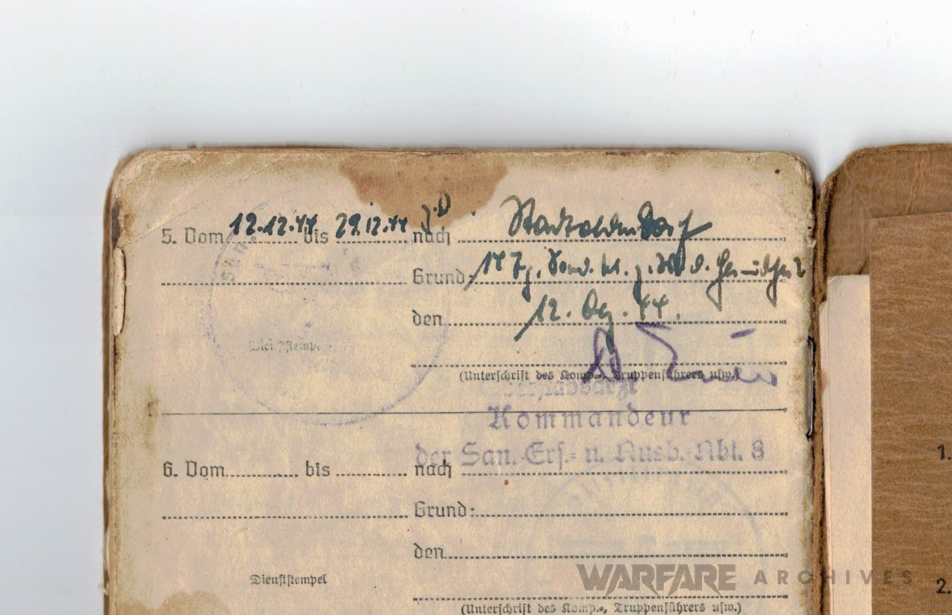 5. Vom 12.12.44 bis 29.12.44 nach Stadtoldendorf
Grund: 17 Tg. Sond. Url.
den 12. Dez. 44.
Dienststempel
(Unterschrift des Komp., Truppenführers usw.)
Oberstabsarzt
Kommandeur
der San. Ers.- u. Ausb. Abt. 8
6. Vom bis nach
Grund:
den
Dienststempel
(Unterschrift des Komp., Truppenführers usw.)
1.
2
WARFARE ARCHIVES